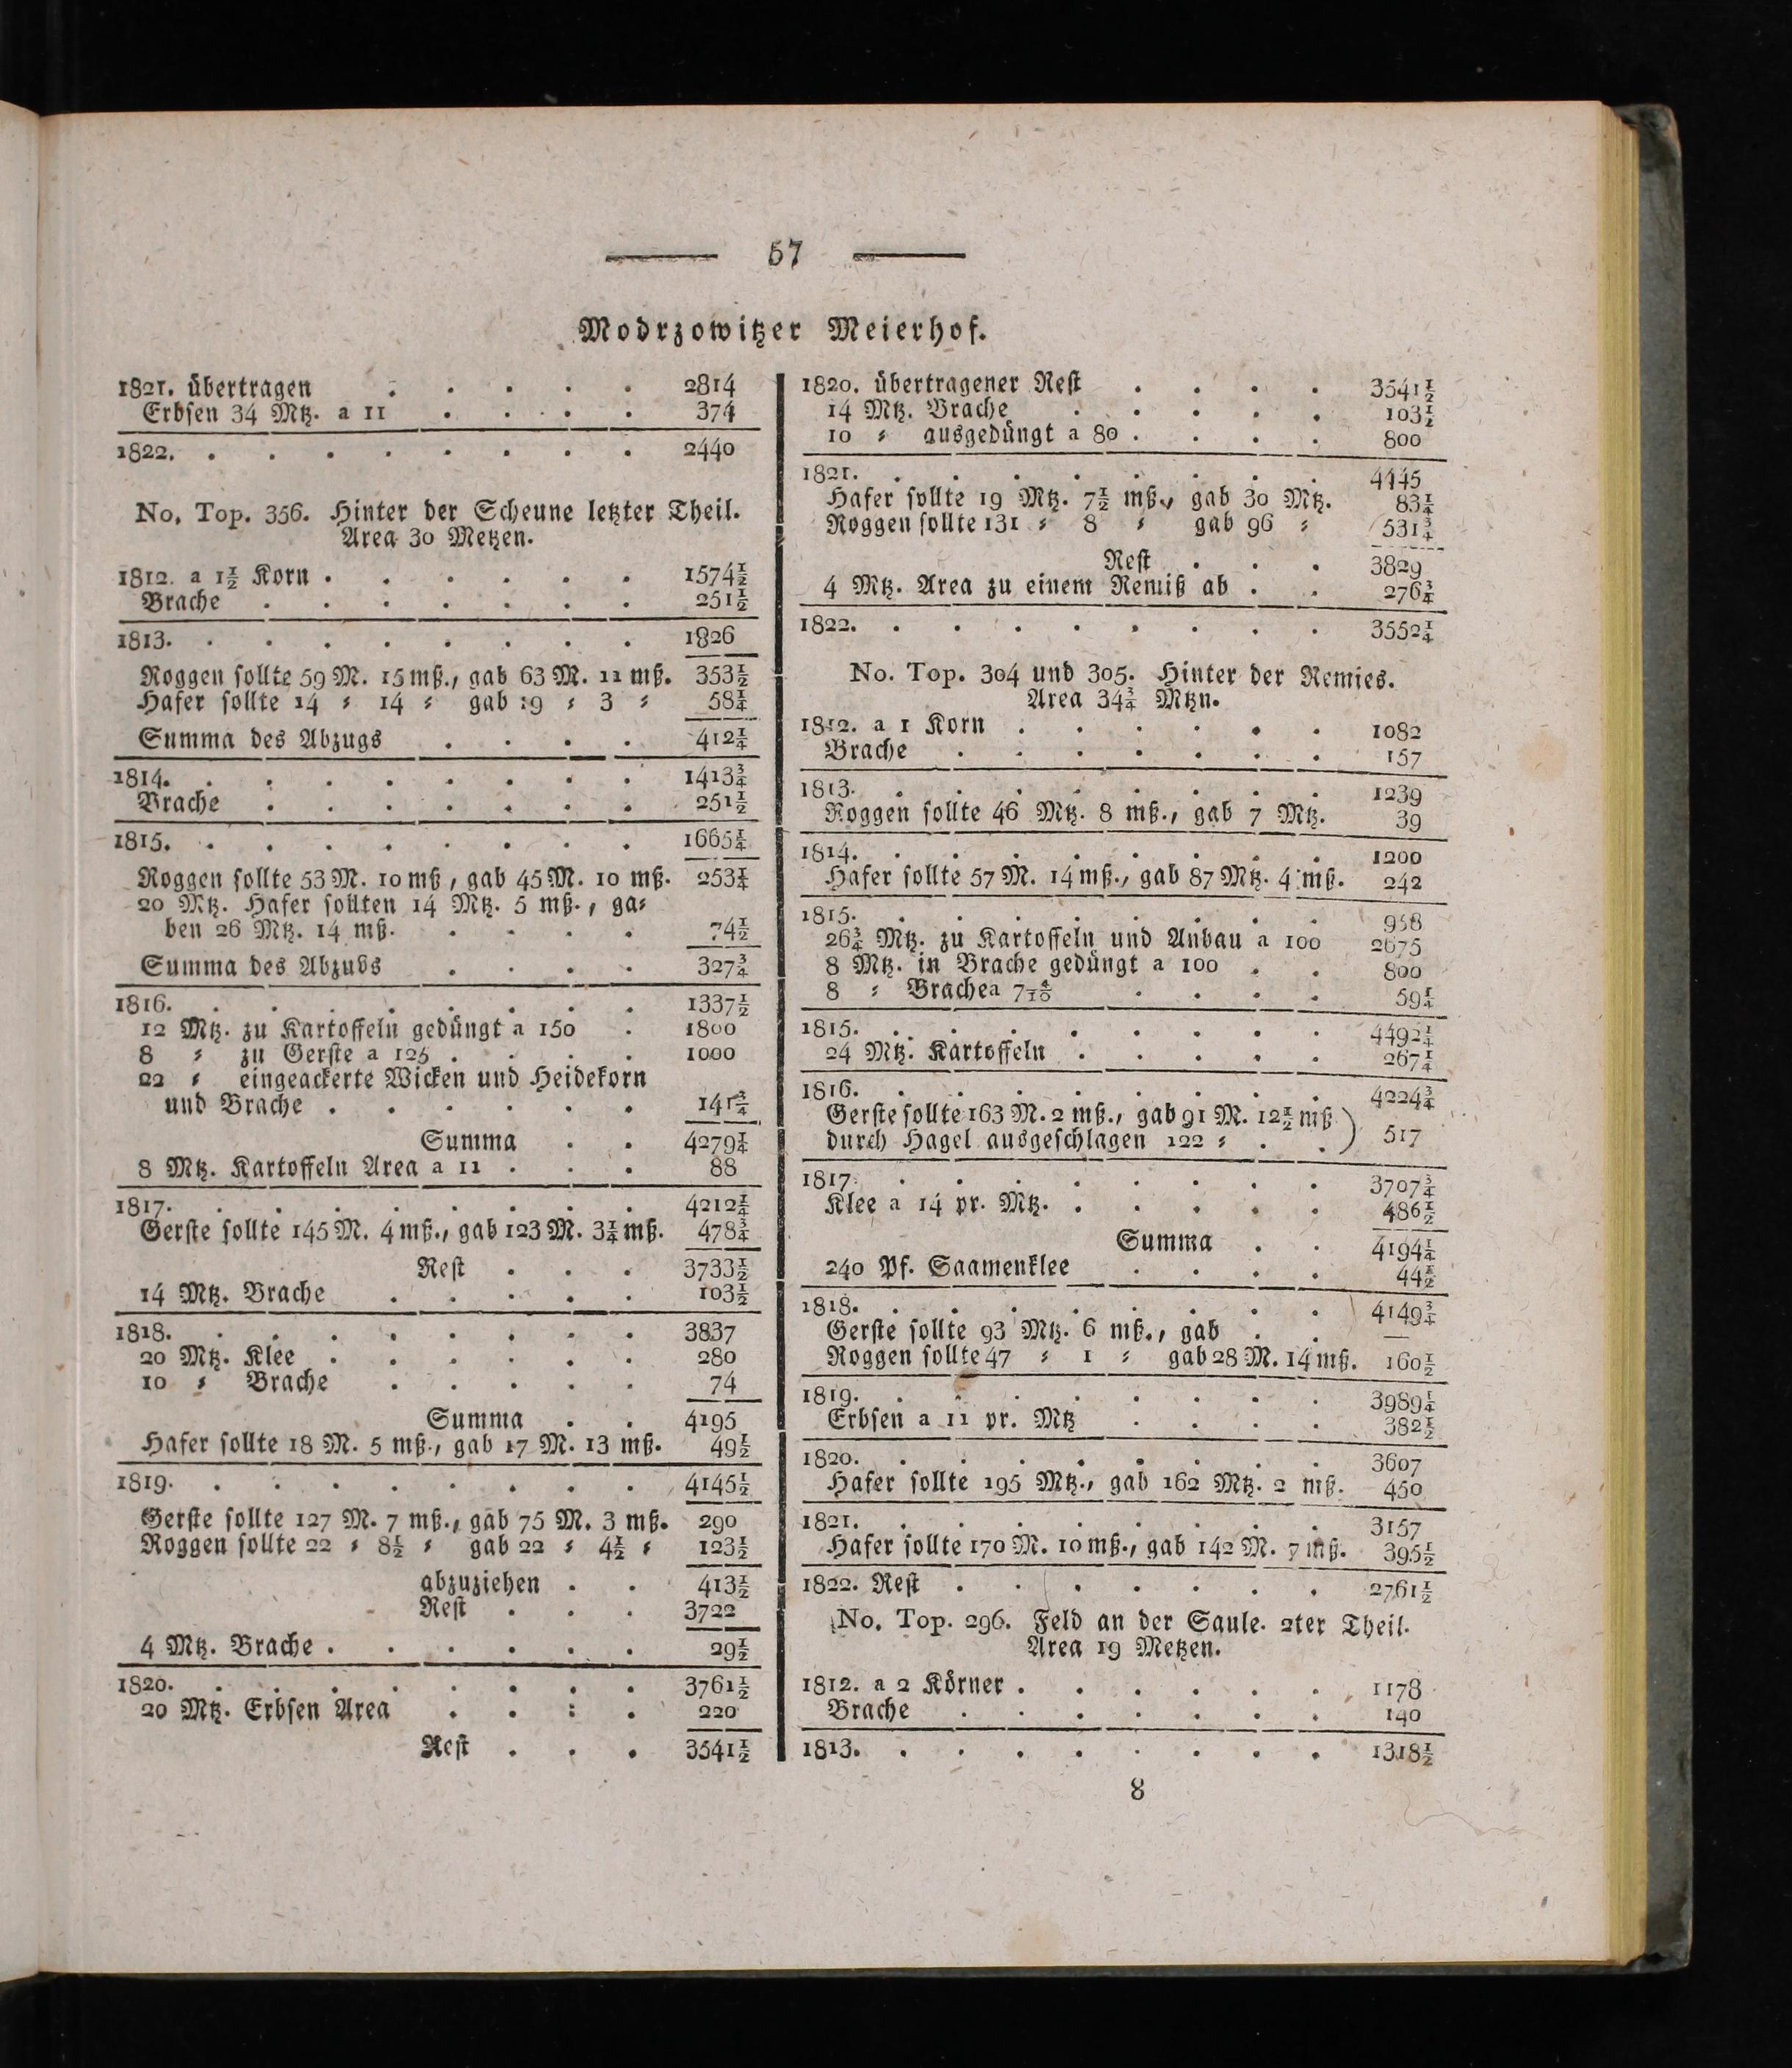 57
Modrzowitzer Meierhof.
1821. übertragen . . . . . 2814
Erbsen 34 Mtz. a 11 . . . . 374
1822. . . . . . . . . 2440
No. Top. 356. Hinter der Scheune letzter Theil.
Area 30 Metzen.
1812. a 1½ Korn . . . . . . 1574½
Brache . . . . . . . 251½
1813. . . . . . . . . 1826
Roggen sollte 59 M. 15 mß., gab 63 M. 11 mß. 353½
Hafer sollte 14 ⸗ 14 ⸗ gab 19 ⸗ 3 ⸗ 58¼
Summa des Abzugs . . . . 412¼
1814. . . . . . . . . 1413¾
Brache . . . . . . . 251½
1815. . . . . . . . . 1665¼
Roggen sollte 53 M. 10 mß, gab 45 M. 10 mß. 253¼
20 Mtz. Hafer sollten 14 Mtz. 5 mß., ga⸗
ben 26 Mtz. 14 mß. . . . . 74½
Summa des Abzuds . . . . 327¾
1816. . . . . . . . . 1337½
12 Mtz. zu Kartoffeln gedüngt a 150 . 1800
8 ⸗ zu Gerste a 125 . . . . 1000
22 ⸗ eingeackerte Wicken und Heidekorn
und Brache . . . . . . 141¾
Summa . . 4279¼
8 Mtz. Kartoffeln Area a 11 . . . 88
1817. . . . . . . . . 4212¼
Gerste sollte 145 M. 4 mß., gab 123 M. 3¼ mß. 478¾
Rest . . . 3733½
14 Mtz. Brache . . . . . 103½
1818. . . . . . . . . 3837
20 Mtz. Klee . . . . . . 280
10 ⸗ Brache . . . . . 74
Summa . . 4195
Hafer sollte 18 M. 5 mß., gab 17 M. 13 mß. 49½
1819. . . . . . . . . 4145½
Gerste sollte 127 M. 7 mß., gab 75 M. 3 mß. 290
Roggen sollte 22 ⸗ 8½ ⸗ gab 22 ⸗ 4½ ⸗ 123½
abzuziehen . . 413½
Rest . . . 3722
4 Mtz. Brache . . . . . . 29½
1820. . . . . . . . . 3761½
20 Mtz. Erbsen Area . . : . 220
Rest . . . 3541½
1820. übertragener Rest . . . . 3541½
14 Mtz. Brache . . . . . 103½
10 ⸗ ausgedüngt a 80 . . . . 800
1821. . . . . . . . . 4445
Hafer sollte 19 Mtz. 7½ mß., gab 30 Mtz. 83¼
Roggen sollte 131 ⸗ 8 ⸗ gab 96 ⸗ 531¾
Rest . . . 3829
4 Mtz. Area zu einem Remiß ab . . 276¾
1822. . . . . . . . . 3552¼
No. Top. 304 und 305. Hinter der Remies.
Area 34¾ Mtzn.
1812. a 1 Korn . . . . . . 1082
Brache . . . . . . . 157
1813. . . . . . . . . 1239
Roggen sollte 46 Mtz. 8 mß., gab 7 Mtz. 39
1814. . . . . . . . . 1200
Hafer sollte 57 M. 14 mß., gab 87 Mtz. 4 mß. 242
1815. . . . . . . . . 958
26¾ Mtz. zu Kartoffeln und Anbau a 100 2675
8 Mtz. in Brache gedüngt a 100 . . 800
8 ⸗ Brache a 7 4/10 . . . . 59¼
1815. . . . . . . . . 4492¼
24 Mtz. Kartoffeln . . . . . 267¼
1816. . . . . . . . . 4224¾
Gerste sollte 163 M. 2 mß., gab 91 M. 12½ mß )
durch Hagel ausgeschlagen 122 ⸗ . . ) 517
1817. . . . . . . . . 3707¾
Klee a 14 pr. Mtz. . . . . . 486½
Summa . . 4194¼
240 Pf. Saamenklee . . . . 44½
1818. . . . . . . . . 4149¾
Gerste sollte 93 Mtz. 6 mß., gab . . —
Roggen sollte 47 ⸗ 1 ⸗ gab 28 M. 14 mß. 160½
1819. . . . . . . . . 3989¼
Erbsen a 11 pr. Mtz . . . . 382½
1820. . . . . . . . . 3607
Hafer sollte 195 Mtz., gab 162 Mtz. 2 mß. 450
1821. . . . . . . . . 3157
Hafer sollte 170 M. 10 mß., gab 142 M. 7 mß. 395½
1822. Rest . . . . . . . 2761½
No. Top. 296. Feld an der Saule. 2ter Theil.
Area 19 Metzen.
1812. a 2 Körner . . . . . . 1178
Brache . . . . . . . 140
1813. . . . . . . . . 1318½
8